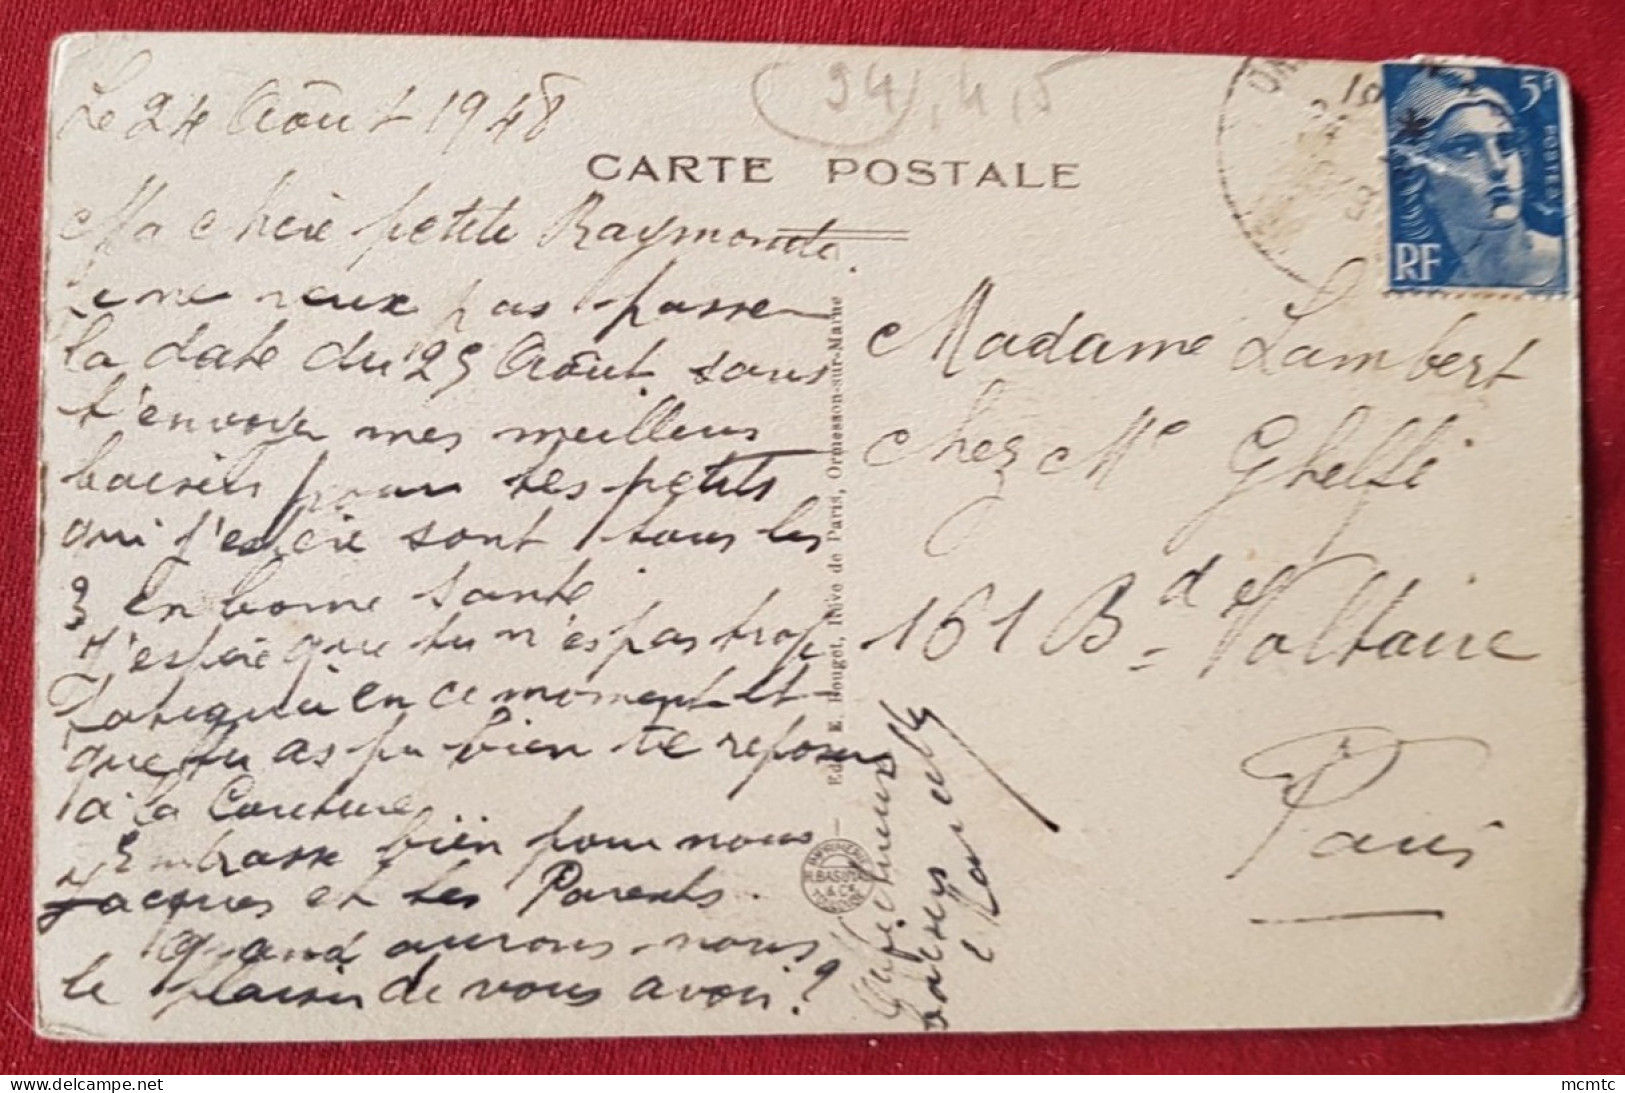 Le 24 Août 1948
(94), 4, 5
CARTE POSTALE
5F
POSTES
RF
Ma chère petite Raymonde.
Je ne veux pas passer
la date du 25 Août sans
t'envoyer mes meilleurs
baisers pour tes petits
qui j'espère sont tous les
3 en bonne santé
J'espère que tu n'es pas trop
fatiguée en ce moment et
que tu as pu bien te reposer
à la Couture
Embrasse bien pour nous
Jacques et tes Parents.
quand aurons nous
le plaisir de vous avoir?
Affectueuses
baisers
Edit. E. Bouget, Rive de Paris, Ormesson-sur-Marne
IMPRIMERIE
& Cie
Madame Lambert
chez Me Ghelfi
161 Bd Voltaire
Paris
mcmtc